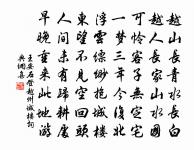 越山長青水長白
越人長家山水國
可憐客子無定宅
一夢三年今復北
浮雲縹緲抱城樓
東望不見空回頭
人間未有歸耕處
早晚重來此地游
王安石登越州城樓詞